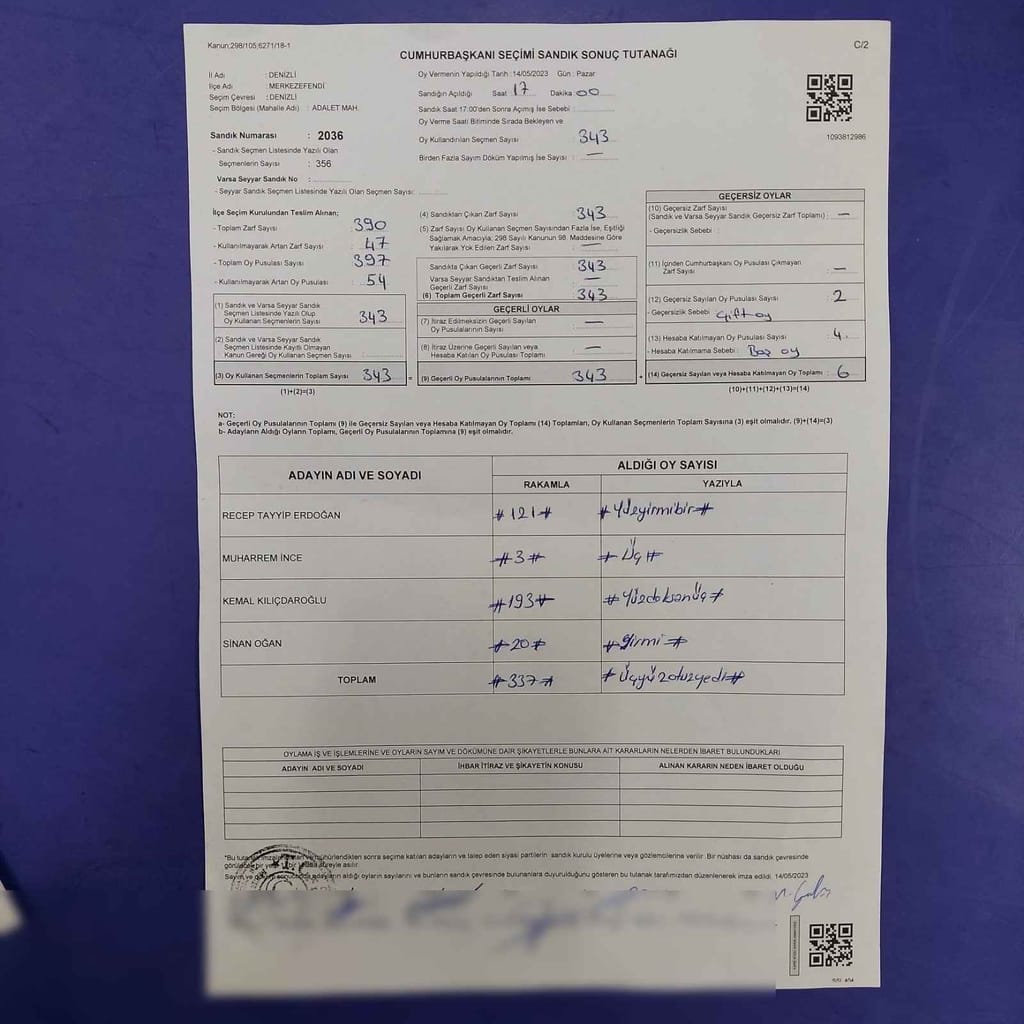 Kanun;298/105;6271/18-1
C/2
CUMHURBAŞKANI SEÇİMİ SANDIK SONUÇ TUTANAĞI
İl Adı : DENİZLİ
İlçe Adı : MERKEZEFENDİ
Seçim Çevresi : DENİZLİ
Seçim Bölgesi (Mahalle Adı) : ADALET MAH.
Oy Vermenin Yapıldığı Tarih :14/05/2023 Gün : Pazar
Sandığın Açıldığı Saat 17 Dakika 00
Sandık Saat 17:00'den Sonra Açılmış İse Sebebi :
Oy Verme Saati Bitiminde Sırada Bekleyen ve
Oy Kullandırılan Seçmen Sayısı 343
Birden Fazla Sayım Döküm Yapılmış İse Sayısı : —
1093812986
Sandık Numarası : 2036
- Sandık Seçmen Listesinde Yazılı Olan
Seçmenlerin Sayısı : 356
Varsa Seyyar Sandık No :
- Seyyar Sandık Seçmen Listesinde Yazılı Olan Seçmen Sayısı:
İlçe Seçim Kurulundan Teslim Alınan;
- Toplam Zarf Sayısı : 390
- Kullanılmayarak Artan Zarf Sayısı : 47
- Toplam Oy Pusulası Sayısı : 397
- Kullanılmayarak Artan Oy Pusulası : 54
(1) Sandık ve Varsa Seyyar Sandık
Seçmen Listesinde Yazılı Olup
Oy Kullanan Seçmenlerin Sayısı : 343
(2) Sandık ve Varsa Seyyar Sandık
Seçmen Listesinde Kayıtlı Olmayan
Kanun Gereği Oy Kullanan Seçmen Sayısı :
(3) Oy Kullanan Seçmenlerin Toplam Sayısı : 343 =
(1)+(2)=(3)
(4) Sandıktan Çıkan Zarf Sayısı : 343
(5) Zarf Sayısı Oy Kullanan Seçmen Sayısından Fazla İse, Eşitliği
Sağlamak Amacıyla; 298 Sayılı Kanunun 98. Maddesine Göre
Yakılarak Yok Edilen Zarf Sayısı : —
Sandıkta Çıkan Geçerli Zarf Sayısı : 343
Varsa Seyyar Sandıktan Teslim Alınan
Geçerli Zarf Sayısı : —
(6) Toplam Geçerli Zarf Sayısı : 343
GEÇERLİ OYLAR
(7) İtiraz Edilmeksizin Geçerli Sayılan
Oy Pusulalarının Sayısı : —
(8) İtiraz Üzerine Geçerli Sayılan veya
Hesaba Katılan Oy Pusulası Toplamı : —
(9) Geçerli Oy Pusulalarının Toplamı : 343 +
GEÇERSİZ OYLAR
(10) Geçersiz Zarf Sayısı
(Sandık ve Varsa Seyyar Sandık Geçersiz Zarf Toplamı) : —
- Geçersizlik Sebebi :
(11) İçinden Cumhurbaşkanı Oy Pusulası Çıkmayan
Zarf Sayısı : —
(12) Geçersiz Sayılan Oy Pusulası Sayısı : 2
- Geçersizlik Sebebi : Çift oy
(13) Hesaba Katılmayan Oy Pusulası Sayısı : 4
- Hesaba Katılmama Sebebi : Boş oy
(14) Geçersiz Sayılan veya Hesaba Katılmayan Oy Toplamı : 6
(10)+(11)+(12)+(13)=(14)
NOT:
a- Geçerli Oy Pusulalarının Toplamı (9) ile Geçersiz Sayılan veya Hesaba Katılmayan Oy Toplamı (14) Toplamları, Oy Kullanan Seçmenlerin Toplam Sayısına (3) eşit olmalıdır. (9)+(14)=(3)
b- Adayların Aldığı Oyların Toplamı, Geçerli Oy Pusulalarının Toplamına (9) eşit olmalıdır.
ADAYIN ADI VE SOYADI ALDIĞI OY SAYISI
RAKAMLA YAZIYLA
RECEP TAYYİP ERDOĞAN #121# #Yüzyirmibir#
MUHARREM İNCE #3# #Üç#
KEMAL KILIÇDAROĞLU #193# #Yüzdoksanüç#
SİNAN OĞAN #20# #Yirmi#
TOPLAM #337# #Üçyüzotuzyedi#
OYLAMA İŞ VE İŞLEMLERİNE VE OYLARIN SAYIM VE DÖKÜMÜNE DAİR ŞİKAYETLERLE BUNLARA AİT KARARLARIN NELERDEN İBARET BULUNDUKLARI
ADAYIN ADI VE SOYADI İHBAR İTİRAZ VE ŞİKAYETİN KONUSU ALINAN KARARIN NEDEN İBARET OLDUĞU
sonra seçime katılan adayların ve talep eden siyasi partilerin sandık kurulu üyelerine veya gözlemcilerine verilir. Bir nüshası da sandık çevresinde
aldığı oyların sayılarını ve bunların sandık çevresinde bulunanlara duyurulduğunu gösteren bu tutanak tarafımızdan düzenlenerek imza edildi. 14/05/2023